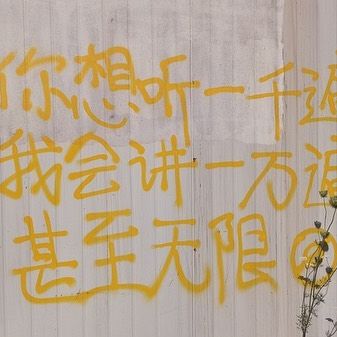 你想听一千遍
我会讲一万遍
甚至无限